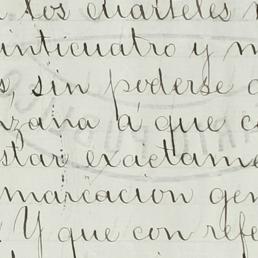 los cuarteles
inticuatro y m
s, sin poderse
nzana á que c
star exactame
marcacion gen
Y que con refe